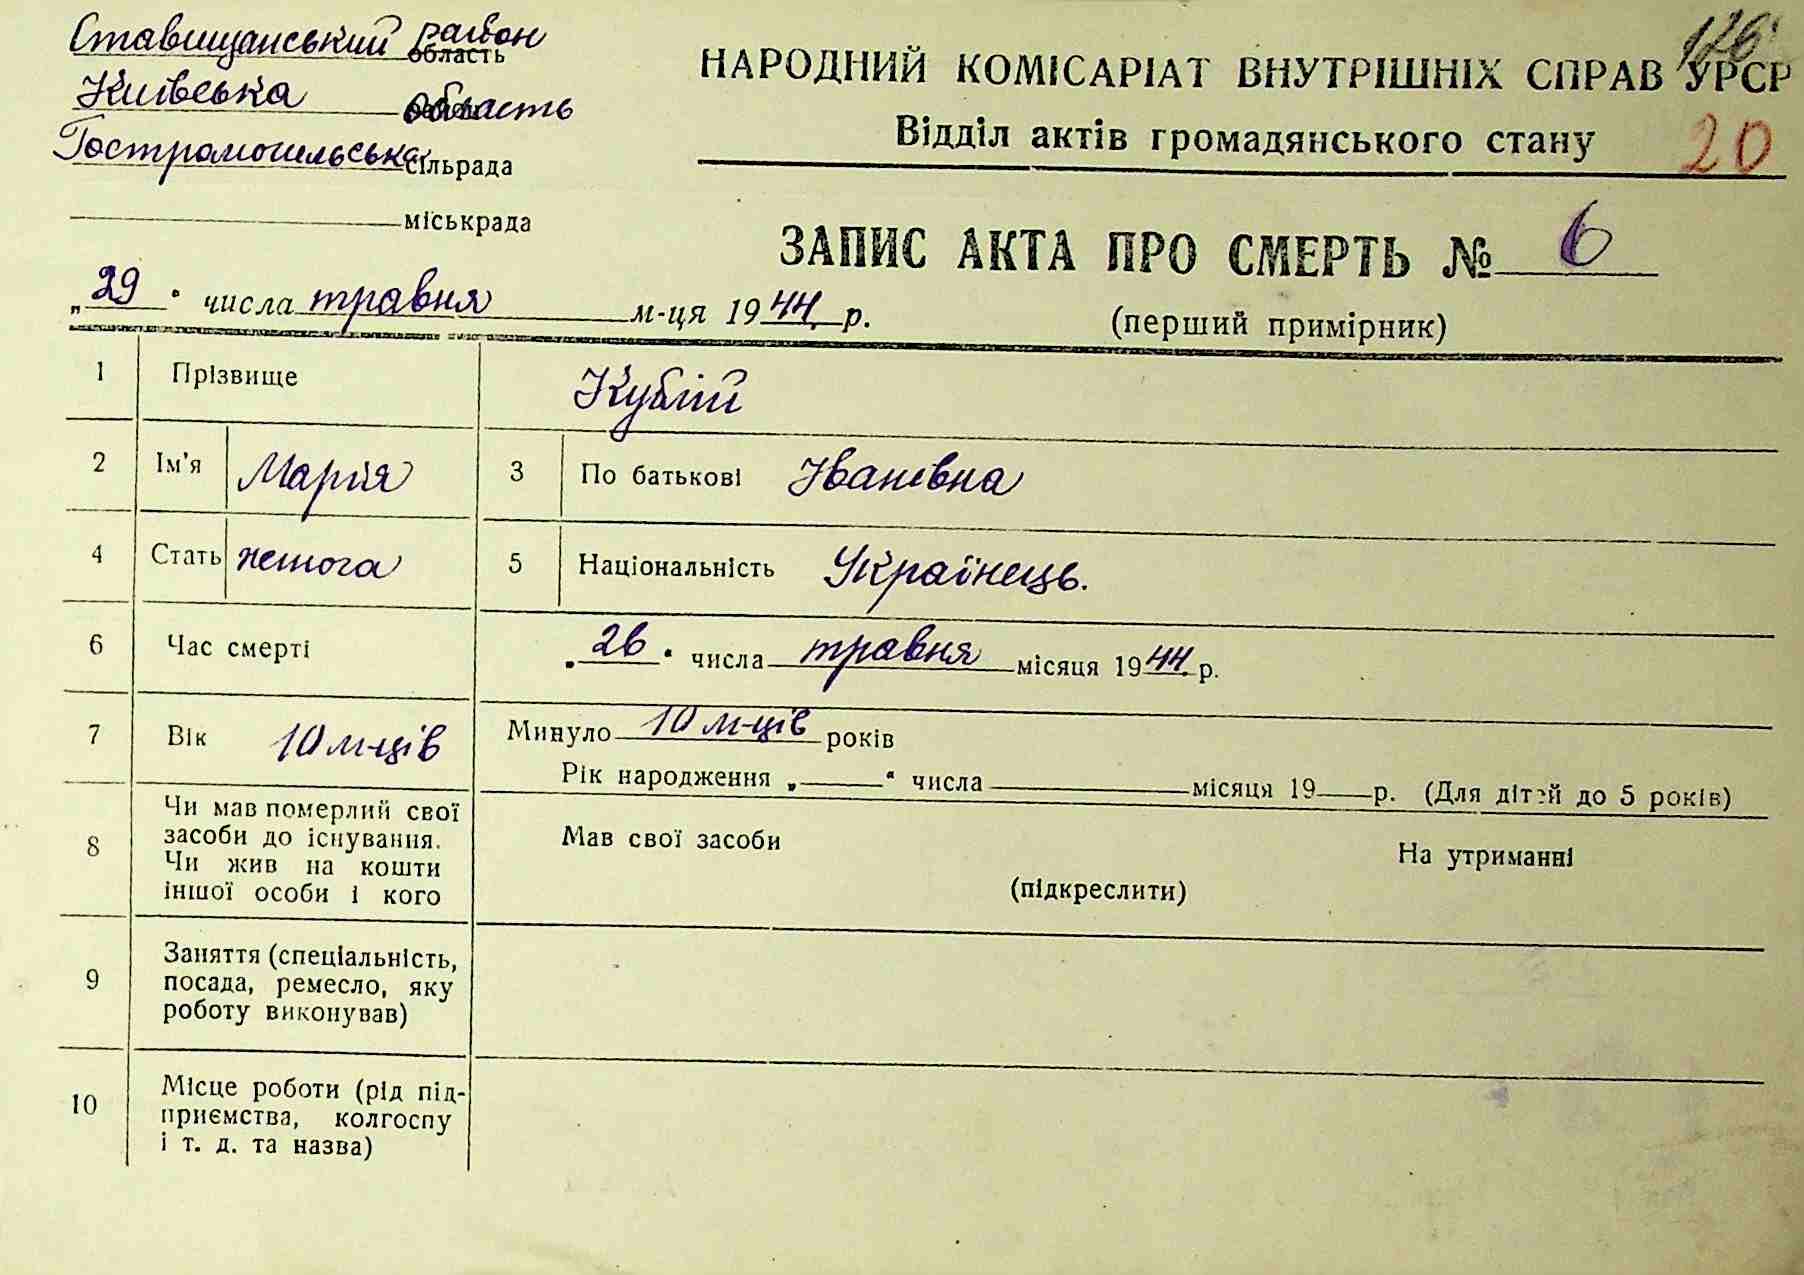 Ставищанський район область
Київська область
Гостромогильська сільрада
міськрада
126
НАРОДНИЙ КОМІСАРІАТ ВНУТРІШНІХ СПРАВ УРСР
Відділ актів громадянського стану
20
ЗАПИС АКТА ПРО СМЕРТЬ № 6
(перший примірник)
„29“ числа травня м-ця 1944 р.
1 Прізвище Кублій
2 Ім'я Марія 3 По батькові Іванівна
4 Стать жіноча 5 Національність Українець.
6 Час смерті „26“ числа травня місяця 1944 р.
7 Вік 10 м-ців Минуло 10 м-ців років
Рік народження „ “ числа місяця 19 р. (Для дітей до 5 років)
8 Чи мав померлий свої
засоби до існування.
Чи жив на кошти
іншої особи і кого
Мав свої засоби На утриманні
(підкреслити)
9 Заняття (спеціальність,
посада, ремесло, яку
роботу виконував)
10 Місце роботи (рід під-
приємства, колгоспу
і т. д. та назва)